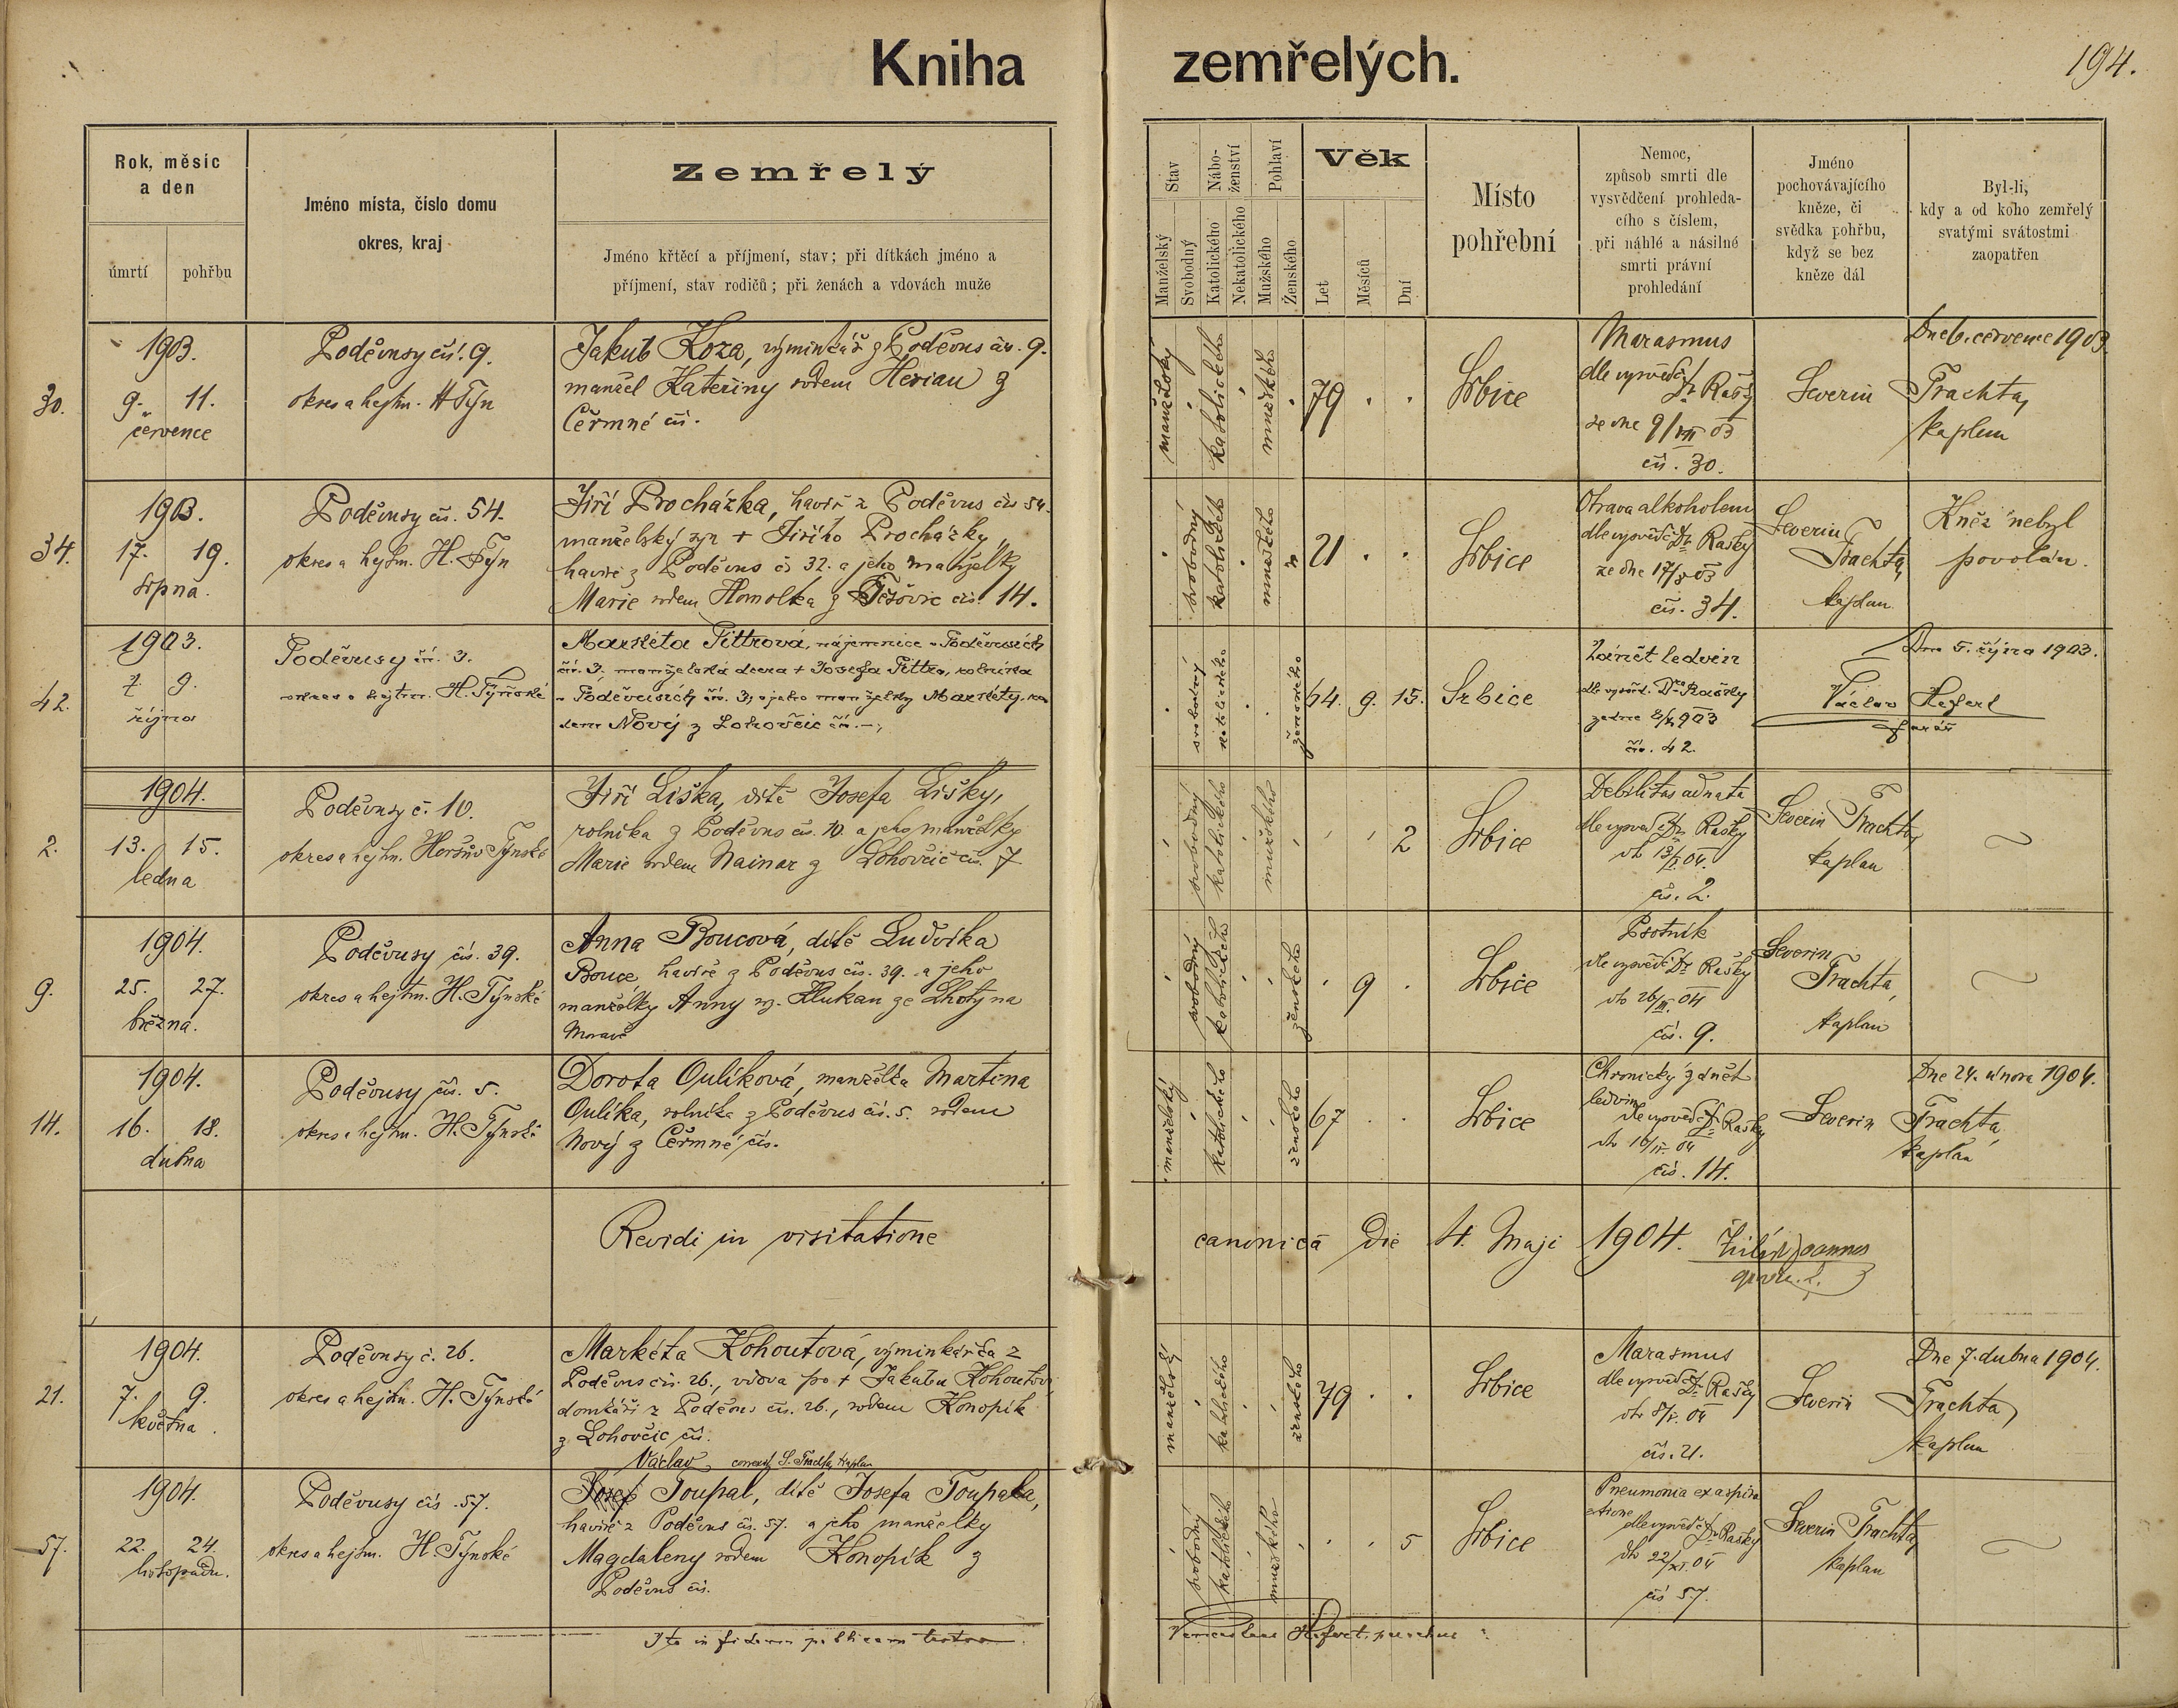 Kniha zemřelých.
194.
Rok, měsíc
a den
úmrtí pohřbu
Jméno místa, číslo domu
okres, kraj
Zemřelý
Jméno křtěcí a příjmení, stav; při dítkách jméno a
příjmení, stav rodičů; při ženách a vdovách muže
Stav
Manželský
Svobodný
Nábo-
ženství
Katolického
Nekatolického
Pohlaví
Mužského
Ženského
Věk
Let
Měsíců
Dní
Místo
pohřební
Nemoc,
způsob smrti dle
vysvědčení prohleda-
cího s číslem,
při náhlé a násilné
smrti právní
prohledání
Jméno
pochovávajícího
kněze, či
svědka pohřbu,
když se bez
kněze dál
Byl-li,
kdy a od koho zemřelý
svatými svátostmi
zaopatřen
30.
1903.
9. 11.
července
Poděvusy čís. 9.
okres a hejtm. H Týn
Jakub Koza, výminkář z Poděvus čís. 9.
manžel Kateřiny rodem Herian z
Čermné čís.
manželský
katolického
mužského
79
Srbice
Marasmus
dle vysvědč. Dr Rašky
ze dne 9/VII 03
čís. 30.
Severin Trachta,
kaplan
Dne 6. července 1903.
34.
1903.
17. 19.
srpna.
Poděvusy čís. 54.
okres a hejtm. H. Týn
Jiří Procházka, havíř z Poděvus čís 54.
manželský syn + Jiřího Procházky,
havíře z Poděvus čs 32. a jeho manželky
Marie rodem Homolka z Těšovic čís. 14.
svobodný
katolického
mužského
21
Srbice
Otrava alkoholem
dle vysvědč. Dr Rašky
ze dne 17/8 03
čís. 34.
Severin
Trachta,
kaplan
Kněz nebyl
povolán.
42.
1903.
7. 9.
října
Poděvusy čís. 3.
okres a hejtm. H. Týnské
Markéta Pittrová, nájemnice v Poděvusích
čís. 3, manželská dcera + Josefa Pittra, rolníka
v Poděvusích čís. 3, a jeho manželky Markéty, ro
dem Nový z Lohovčic čís. –,
svobodný
katolického
ženského
64. 9. 15.
Srbice
Zánět ledvin
dle vysvěd. Dra Rašky
čís. 42.
Václav Hefert
farář
Dne 5. října 1903.
2.
1904.
13. 15.
ledna
Poděvusy č. 10.
okres a hejtm. Horšův Týnské
Jiří Liška, dítě Josefa Lišky,
rolníka z Poděvus čís. 10. a jeho manželky
Marie rodem Nainar z Lohovčic čís. 7
svobodný
katolického
mužského
2
Srbice
Debilitas adnata
dle vysvěd č. Dr. Rašky
dto 13/I. 04.
čís. 2.
Severin Trachta,
kaplan
9.
1904.
25. 27.
března.
Poděvusy čís. 39.
okres a hejtm. H. Týnské
Anna Boucová, dítě Ludvíka
Bouce, havíře z Poděvus čís. 39. a jeho
manželky Anny roz. Klukan ze Lhoty na
Moravě
svobodný
katolického
ženského
9
Srbice
Psotník
dle vysvědč. Dr Rašky
dto 26/III. 04
čís. 9.
Severin
Trachta,
kaplan
14.
1904.
16. 18.
dubna
Poděvusy čís. 5.
okres a hejtm. H. Týnské
Dorota Oulíková, manželka Martina
Oulíka, rolníka z Poděvus čís. 5. rodem
Nový z Čermné čís.
manželský
katolického
ženského
67
Srbice
Chronický zánět
ledvin
dle vysvědč. Dr Rašky
dto 16/IV. 04
čís. 14.
Severin Trachta,
kaplan
Dne 24. února 1904.
Revidi in visitatione canonica die 4. Maji 1904.
Joannes
21.
1904.
7. 9.
května.
Poděvusy č. 26.
okres a hejtm. H. Týnské
Markéta Kohoutová, výminkářka z
Poděvus čís. 26., vdova po + Jakubu Kohoutovi
domkáři z Poděvus čís. 26., rodem Konopík
z Lohovčic čís.
manželský
katolického
ženského
79
Srbice
Marasmus
dle vysvědč. Dr Rašky
dto 8/V. 04
čís. 21.
Severin Trachta,
kaplan
Dne 7. dubna 1904.
57.
1904.
22. 24.
listopadu.
Poděvusy čís. 57.
okres a hejtm. H. Týnské
Václav S. Trachta, kaplan
Josef Toupal, dítě Josefa Toupala,
havíře z Poděvus čís. 57. a jeho manželky
Magdaleny rodem Konopík z
Poděvus čís.
svobodný
katolického
mužského
5
Srbice
Pneumonia ex aspira
atione
dle vysvědč. Dr Rašky
dto 22/XI. 04
čís 57.
Severin Trachta,
kaplan
Ita in fidem publicam testor
Venceslaus Hefert, parochus